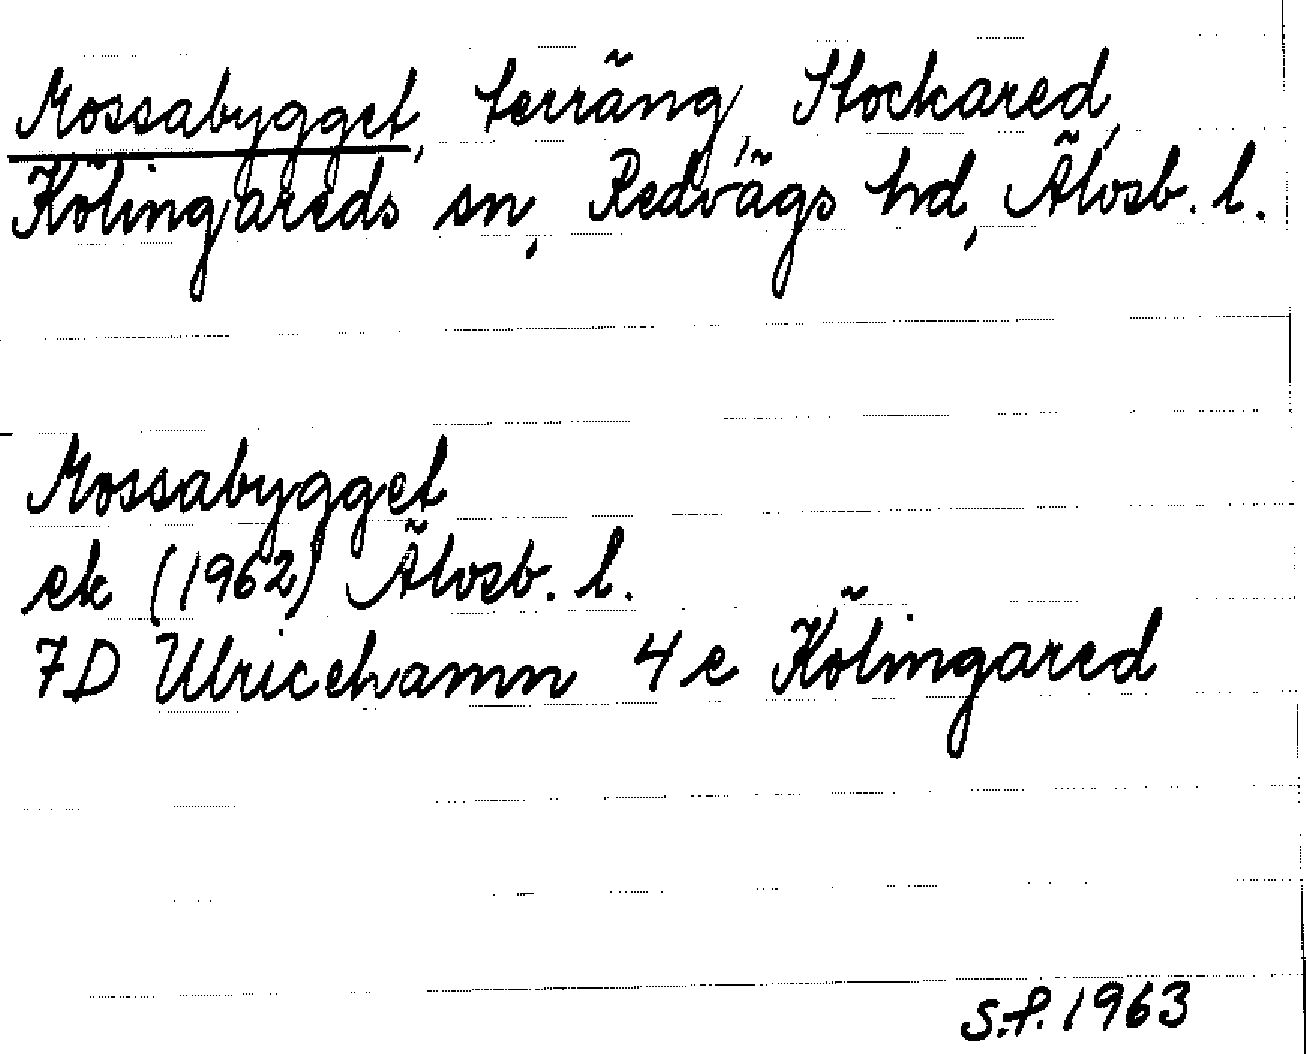 Mossabygget, terräng, Stockared,
Kölingareds sn, Redvägs hd, Älvsb. l.
Mossabygget
ek (1962) Älvsb. l.
7D Ulricehamn 4e Kölingared
S.f. 1963